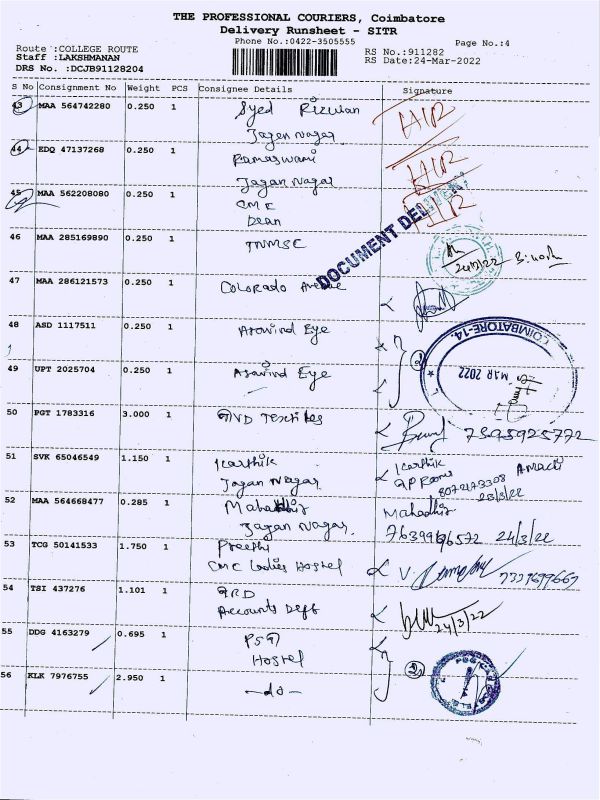 THE PROFESSIONAL COURIERS, Coimbatore
Delivery Runsheet - SITR
Phone No.:0422-3505555
Page No.:4
Route :COLLEGE ROUTE
RS No.:911282
Staff :LAKSHMANAN
RS Date:24-Mar-2022
DRS No. :DCJB91128204
S No Consignment No Weight PCS Consignee Details Signature
43 MAA 564742280 0.250 1 Syed Rizwan
Jagan Nagar
44 EDQ 47137268 0.250 1 Ramaswami
Jagan Nagar
45 MAA 562208080 0.250 1 CME
Dean
DOCUMENT
46 MAA 285169890 0.250 1 TNMSC 24/3/22
47 MAA 286121573 0.250 1 Colorado Avenue
48 ASD 1117511 0.250 1 Aravind Eye
COIMBATORE-14.
MAR 2022
49 UPT 2025704 0.250 1 Aravind Eye
50 PGT 1783316 3.000 1 GVD Textiles 7395925772
51 SVK 65046549 1.150 1 Karthik Karthik
Jagan Nagar
8072173308
23/3/22
52 MAA 564668477 0.285 1 Mahadhir Mahadhir
Jagan Nagar. 24/3/22
53 TCG 50141533 1.750 1 Preethi
CMC Ladies Hostel
54 TSI 437276 1.101 1 GRD
Accounts Deft 24/3/22
55 DDG 4163279 0.695 1 PSG
Hostel
56 KLK 7976755 2.950 1 -do-